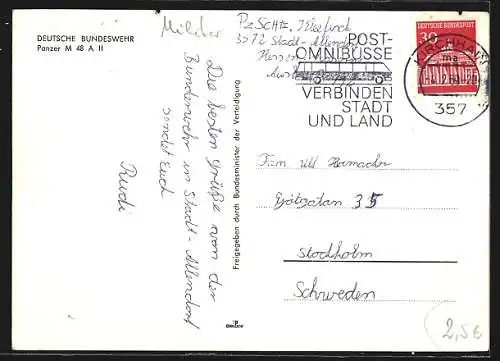 DEUTSCHE BUNDESWEHR
Panzer M 48 A II
Militär
Die besten Grüße von der
Bundeswehr in Stadt-Allendorf
sendet Euch
Rudi
Freigegeben durch Bundesminister der Verteidigung
3572 Stadt-Allendorf
POST-
OMNIBUSSE
VERBINDEN
STADT
UND LAND
KIRCHHAIN
ma
357
30
DEUTSCHE BUNDESPOST
Fam Uli
35
Stockholm
Schweden
2,5€